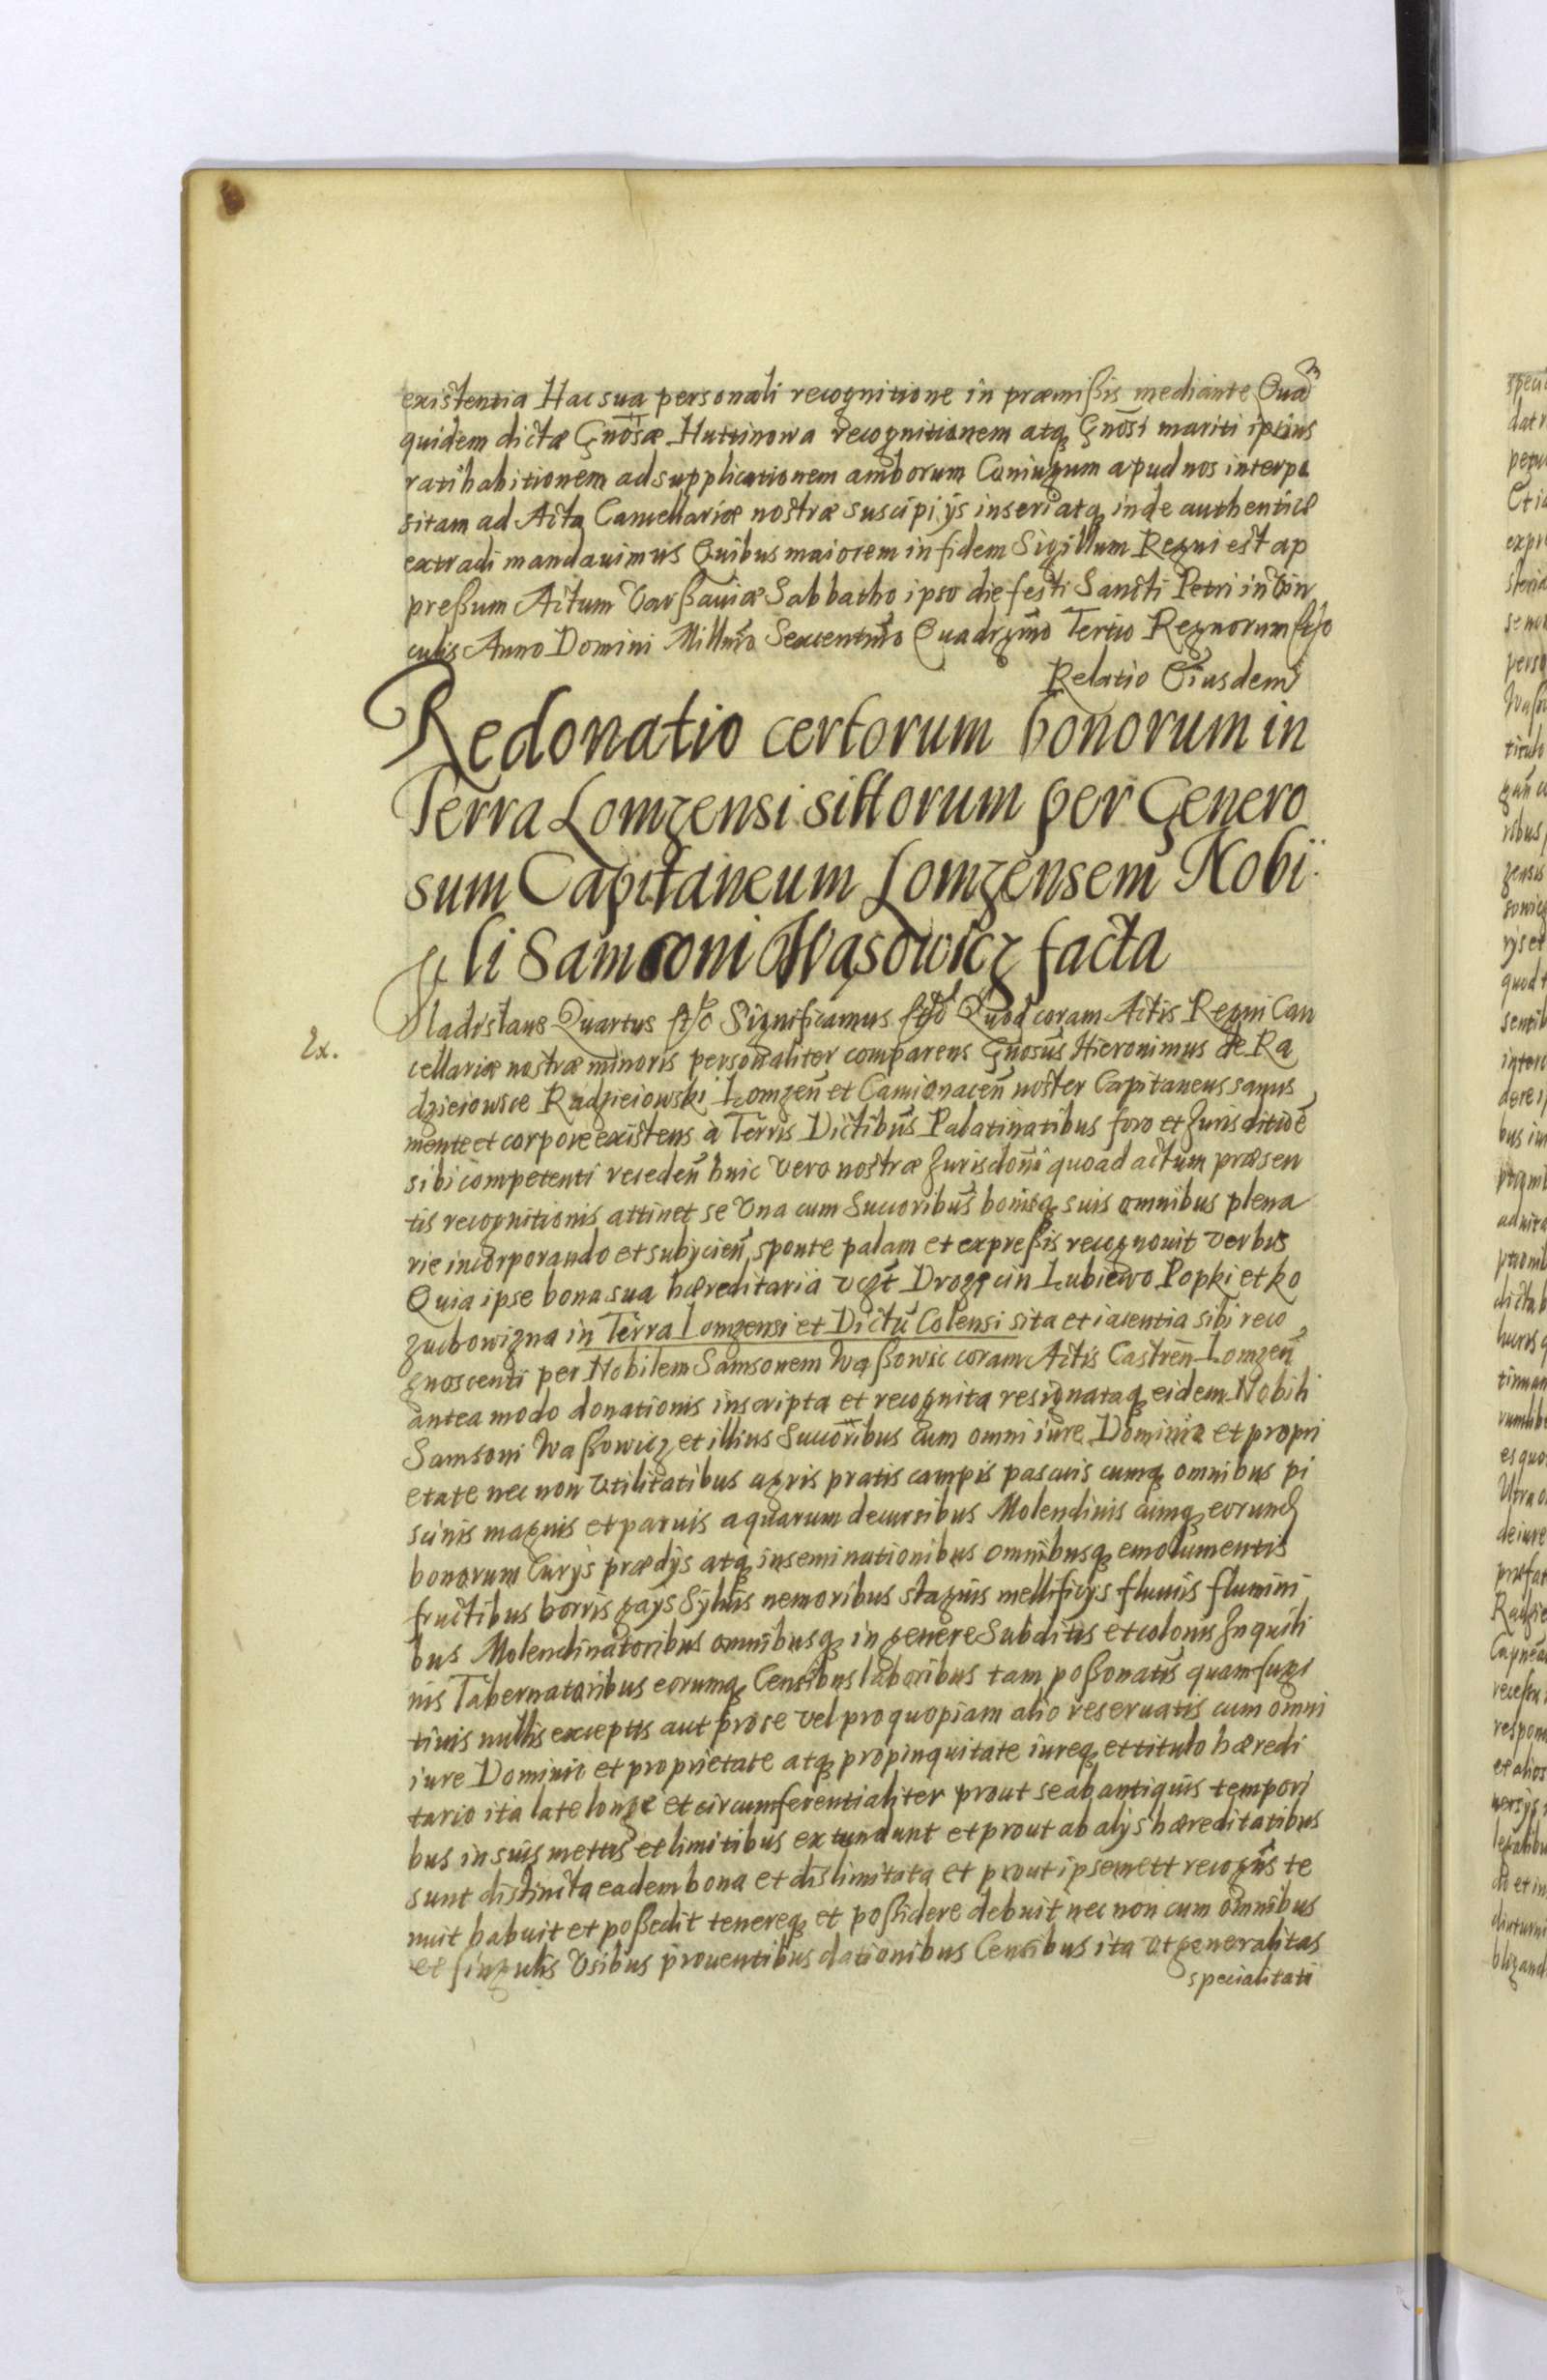 existentia Hac sua personali recognitione in præmißis mediante Quam
quidem dictæ Gnosæ Huttinowa recognitionem atq Gnosi mariti ipsius
ratihabitionem ad supplicationem amborum Coniugum apud nos interpo
sitam ad Acta Cancellariæ nostræ suscipi ijs inseri atq inde authenticè
extradi mandauimus Quibus maiorem in fidem Sigillum Regni est ap
preßum Actum Varßauiæ Sabbatho ipso die festi Sancti Petri in Vin
culis Anno Domini Millmo Sexcentmo Quadrgmo Tertio Regnorum &c
Relatio Eiusdem
Redonatio certorum bonorum in
Terra Lomzensi sittorum per Genero
sum Capitaneum Lomzensem Nobi
li Samsoni Wąsowicz facta
Vladislaus Quartus &c Significamus &c Quod coram Actis Regni Can
Ex.
cellariæ nostræ minoris personaliter comparens Gnosus Hieronimus de Ra
dzieiowice Radzieiowski Lomzen et Camionacen noster Capitaneus sanus
mente et corpore existens à Terris Dictibus Palatinatibus foro et Jurisditioe
sibi competenti receden huic vero nostræ Jurisdoni quoad actum præsen
tis recognitionis attinet se Vna cum Succoribus bonisq suis omnibus plena
rie incorporando et subijcien sponte palam et expreßis recognouit verbis
Quia ipse bona sua hæreditaria vczt Drozęcin Lubiewo Popki et ko
zuchowizna in Terra Lomzensi et Dictu Colensi sita et iacentia sibi reco
gnoscenti per Nobilem Samsonem Wąßowic coram Actis Castren Lomzen
antea modo donationis inscripta et recognita resignataq eidem Nobili
Samsoni Waßowicz et illius Succoribus cum omni iure Dominio et propri
etate nec non Vtilitatibus agris pratis campis pascuis cumq omnibus pi
scinis magnis et paruis aquarum decursibus Molendinis cumq eorund
bonorum Curijs prædijs atq inseminationibus omnibusq emolumentis
fructibus borris gays Syluis nemoribus stagnis mellificijs fluuiis flumini
bus Molendinatoribus omnibusq in genere Subditis et colonis Inquili
nis Tabernatoribus eorumq Censibus laboribus tam poßonatis quam fugi
tiuis nullis exceptis aut pro se vel pro quopiam alio reseruatis cum omni
iure Dominio et proprietate atq propinquitate iureq et titulo hæredi
tario ita late longe et circumferentialiter prout se ab antiquis tempori
bus in suis mettis et limitibus extendunt et prout ab alijs hæreditatibus
sunt distincta eadem bona et dislimitata et prout ipsemett recogns te
nuit habuit et poßedit tenereq et poßidere debuit nec non cum omnibus
et singulis Vsibus prouentibus dationibus Censibus ita Vt generalitas
specialitati